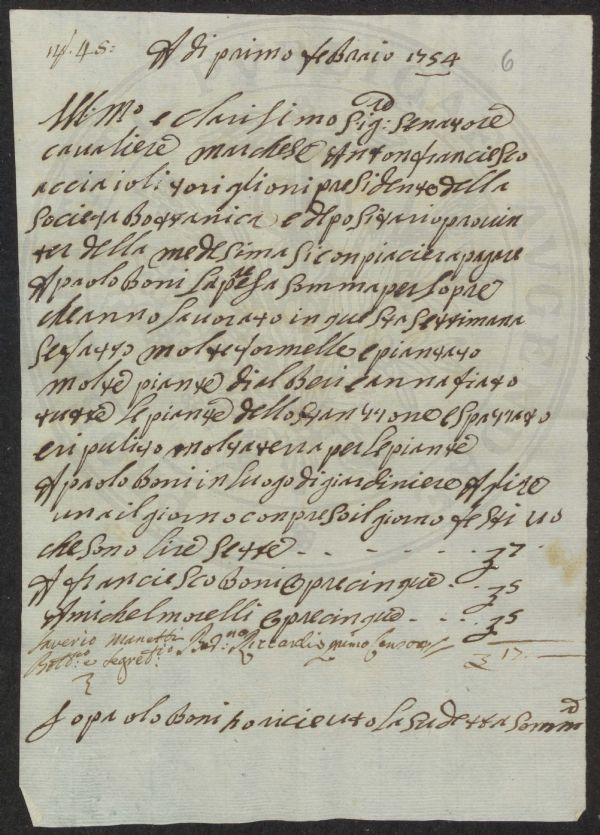 nº. 45: A di primo febraio 1754 6
Ill:mo e clarisimo Sig:re Senatore
cavaliere marchese Antonfranciesco
acciaioli toriglioni presidente della
Societa Bottanica e depositario provin
ter della medesima Si conpiaciera pagare
A paolo Boni La pte: Sa Somma per lopre
che anno Lavorato in questa Settimana
Se fatto molte formelle e piantato
molte piante di alBeri e annafiato
tutte Le piante dello Stanzzone e Spazzato
e ripulito molta terra per le piante
A paolo Boni in luogo di giardiniere A lire
una il giorno conpreso il giorno festivo
che sono lire Sette - - - - - - £ 7
A franciesco Boni opre cinque - - £ 5
A michel morelli opre cinque - - - £ 5
Saverio Manetti Bed:no Riccardi primo Censore £ 17. -
Bott:co e Segret:io
Io paolo Boni ho riceuto La Sudetta Somma